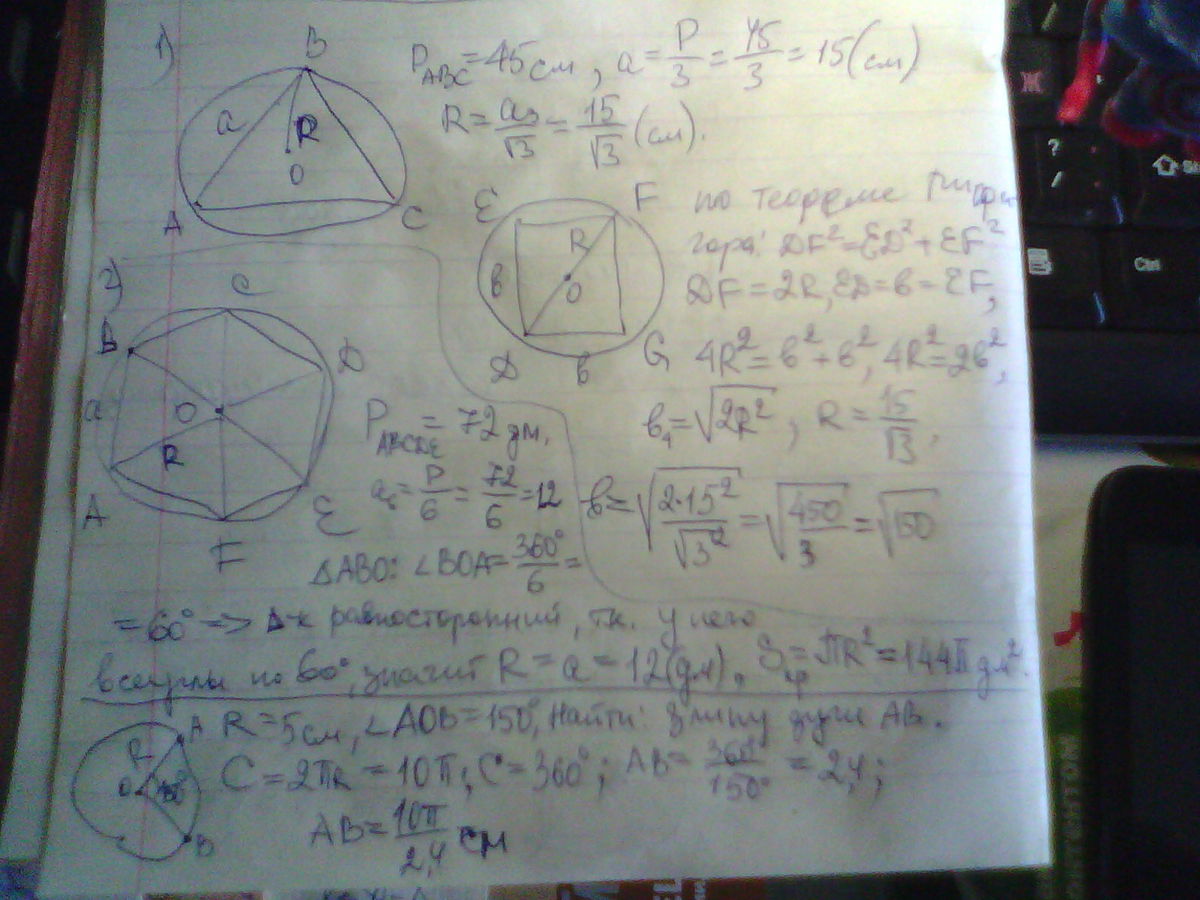 1)
B
a
R
O
A
C
P_ABC = 45 см, a = P/3 = 45/3 = 15 (см)
R = a₃/√3 = 15/√3 (см).
E
F
R
O
в
D
в
G
по теореме Пифагора: DF² = ED² + EF²
DF = 2R, ED = в = EF,
4R² = в² + в², 4R² = 2в²,
в₄ = √(2R²), R = 15/√3,
в = √(2·15²/√3²) = √(450/3) = √150
2)
C
B
D
a
O
R
A
E
F
P_ABCDE = 72 дм,
a₆ = P/6 = 72/6 = 12
ΔABO: ∠BOA = 360°/6 =
= 60° => Δ-к равносторонний, т.к. у него
все углы по 60°, значит R = a = 12 (дм), S_кр = πR² = 144π дм².
A
R
O
150°
B
R = 5 см, ∠AOB = 150°, Найти: длину дуги AB.
C = 2πR = 10π, C = 360°; AB = 360°/150° = 2,4;
AB = 10π/2,4 см
Ж
?
/
Shift
Ctrl